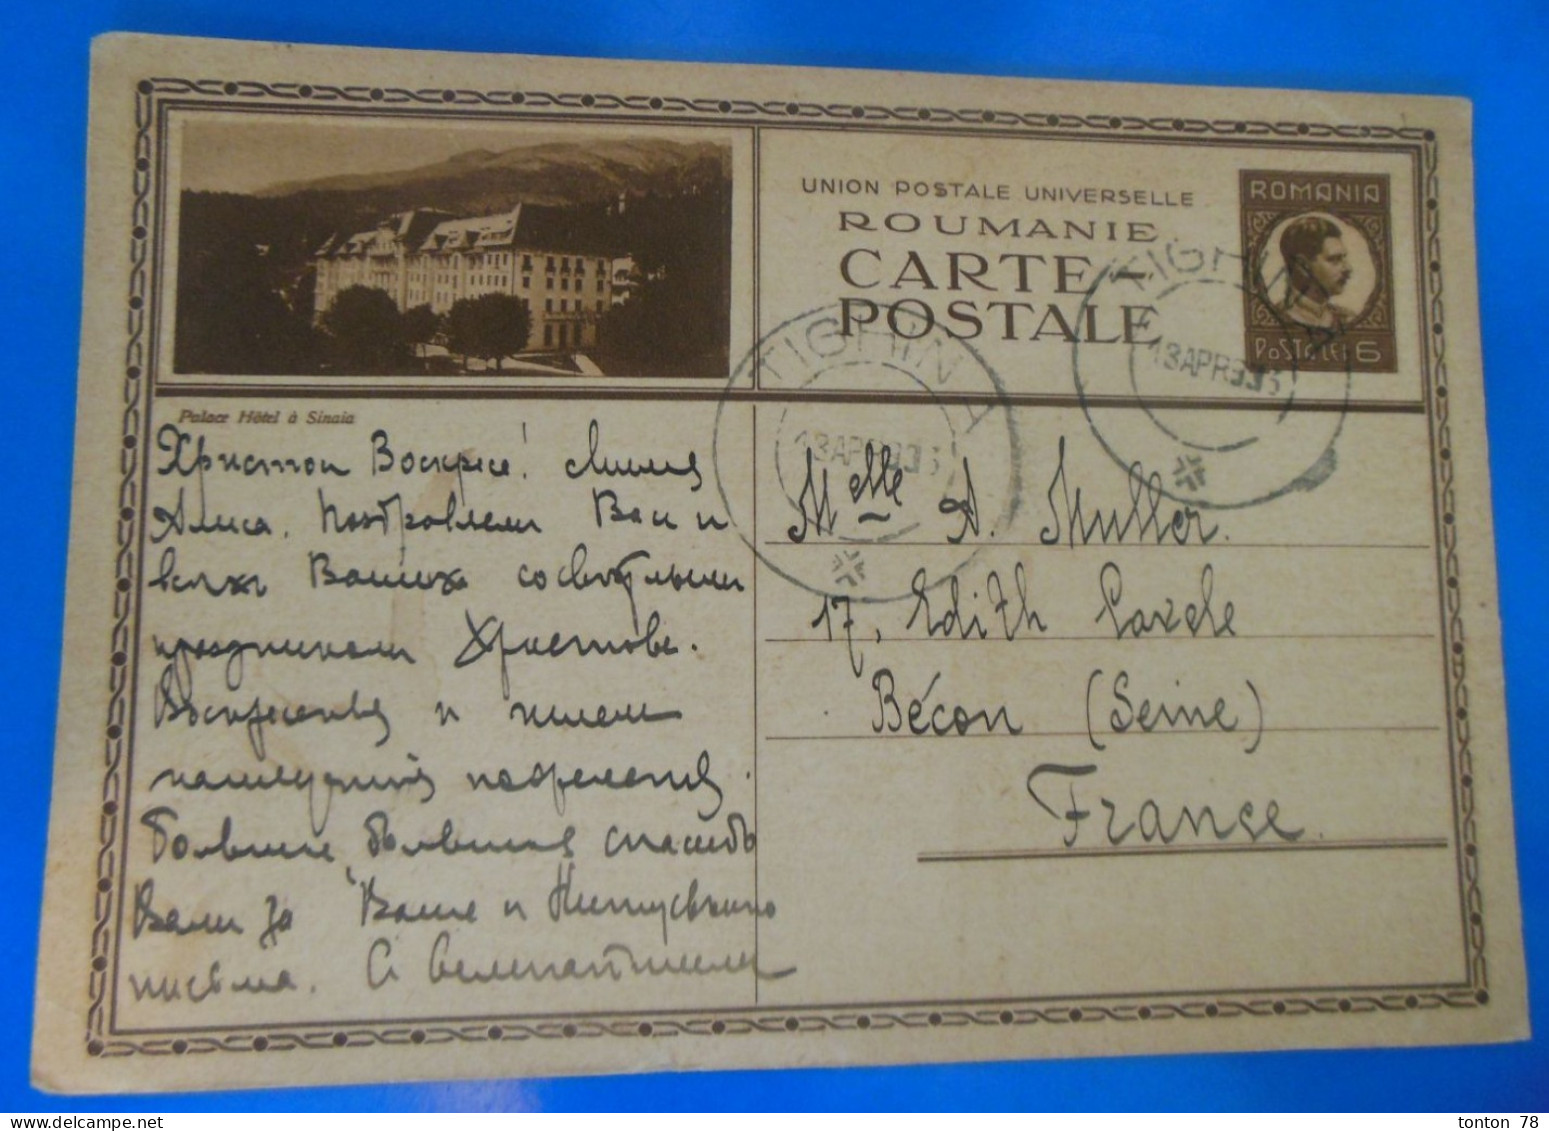 UNION POSTALE UNIVERSELLE
ROUMANIE
CARTE
POSTALE
ROMANIA
POSTALE 6
TIGHINA
13 APR 933
TIGHINA
13 APR 933
Palace Hôtel à Sinaia
Христос Воскресе! Милая
Алиса. Поздравляем Вас и
всех Ваших со светлым
праздником Христова
Воскресенья и шлем
наилучшие пожелания.
Большое, большое спасибо
Вам за Ваше и
письма. С
Melle A. Muller.
17, Edith Cavele
Bécon (Seine)
France.
tonton 78